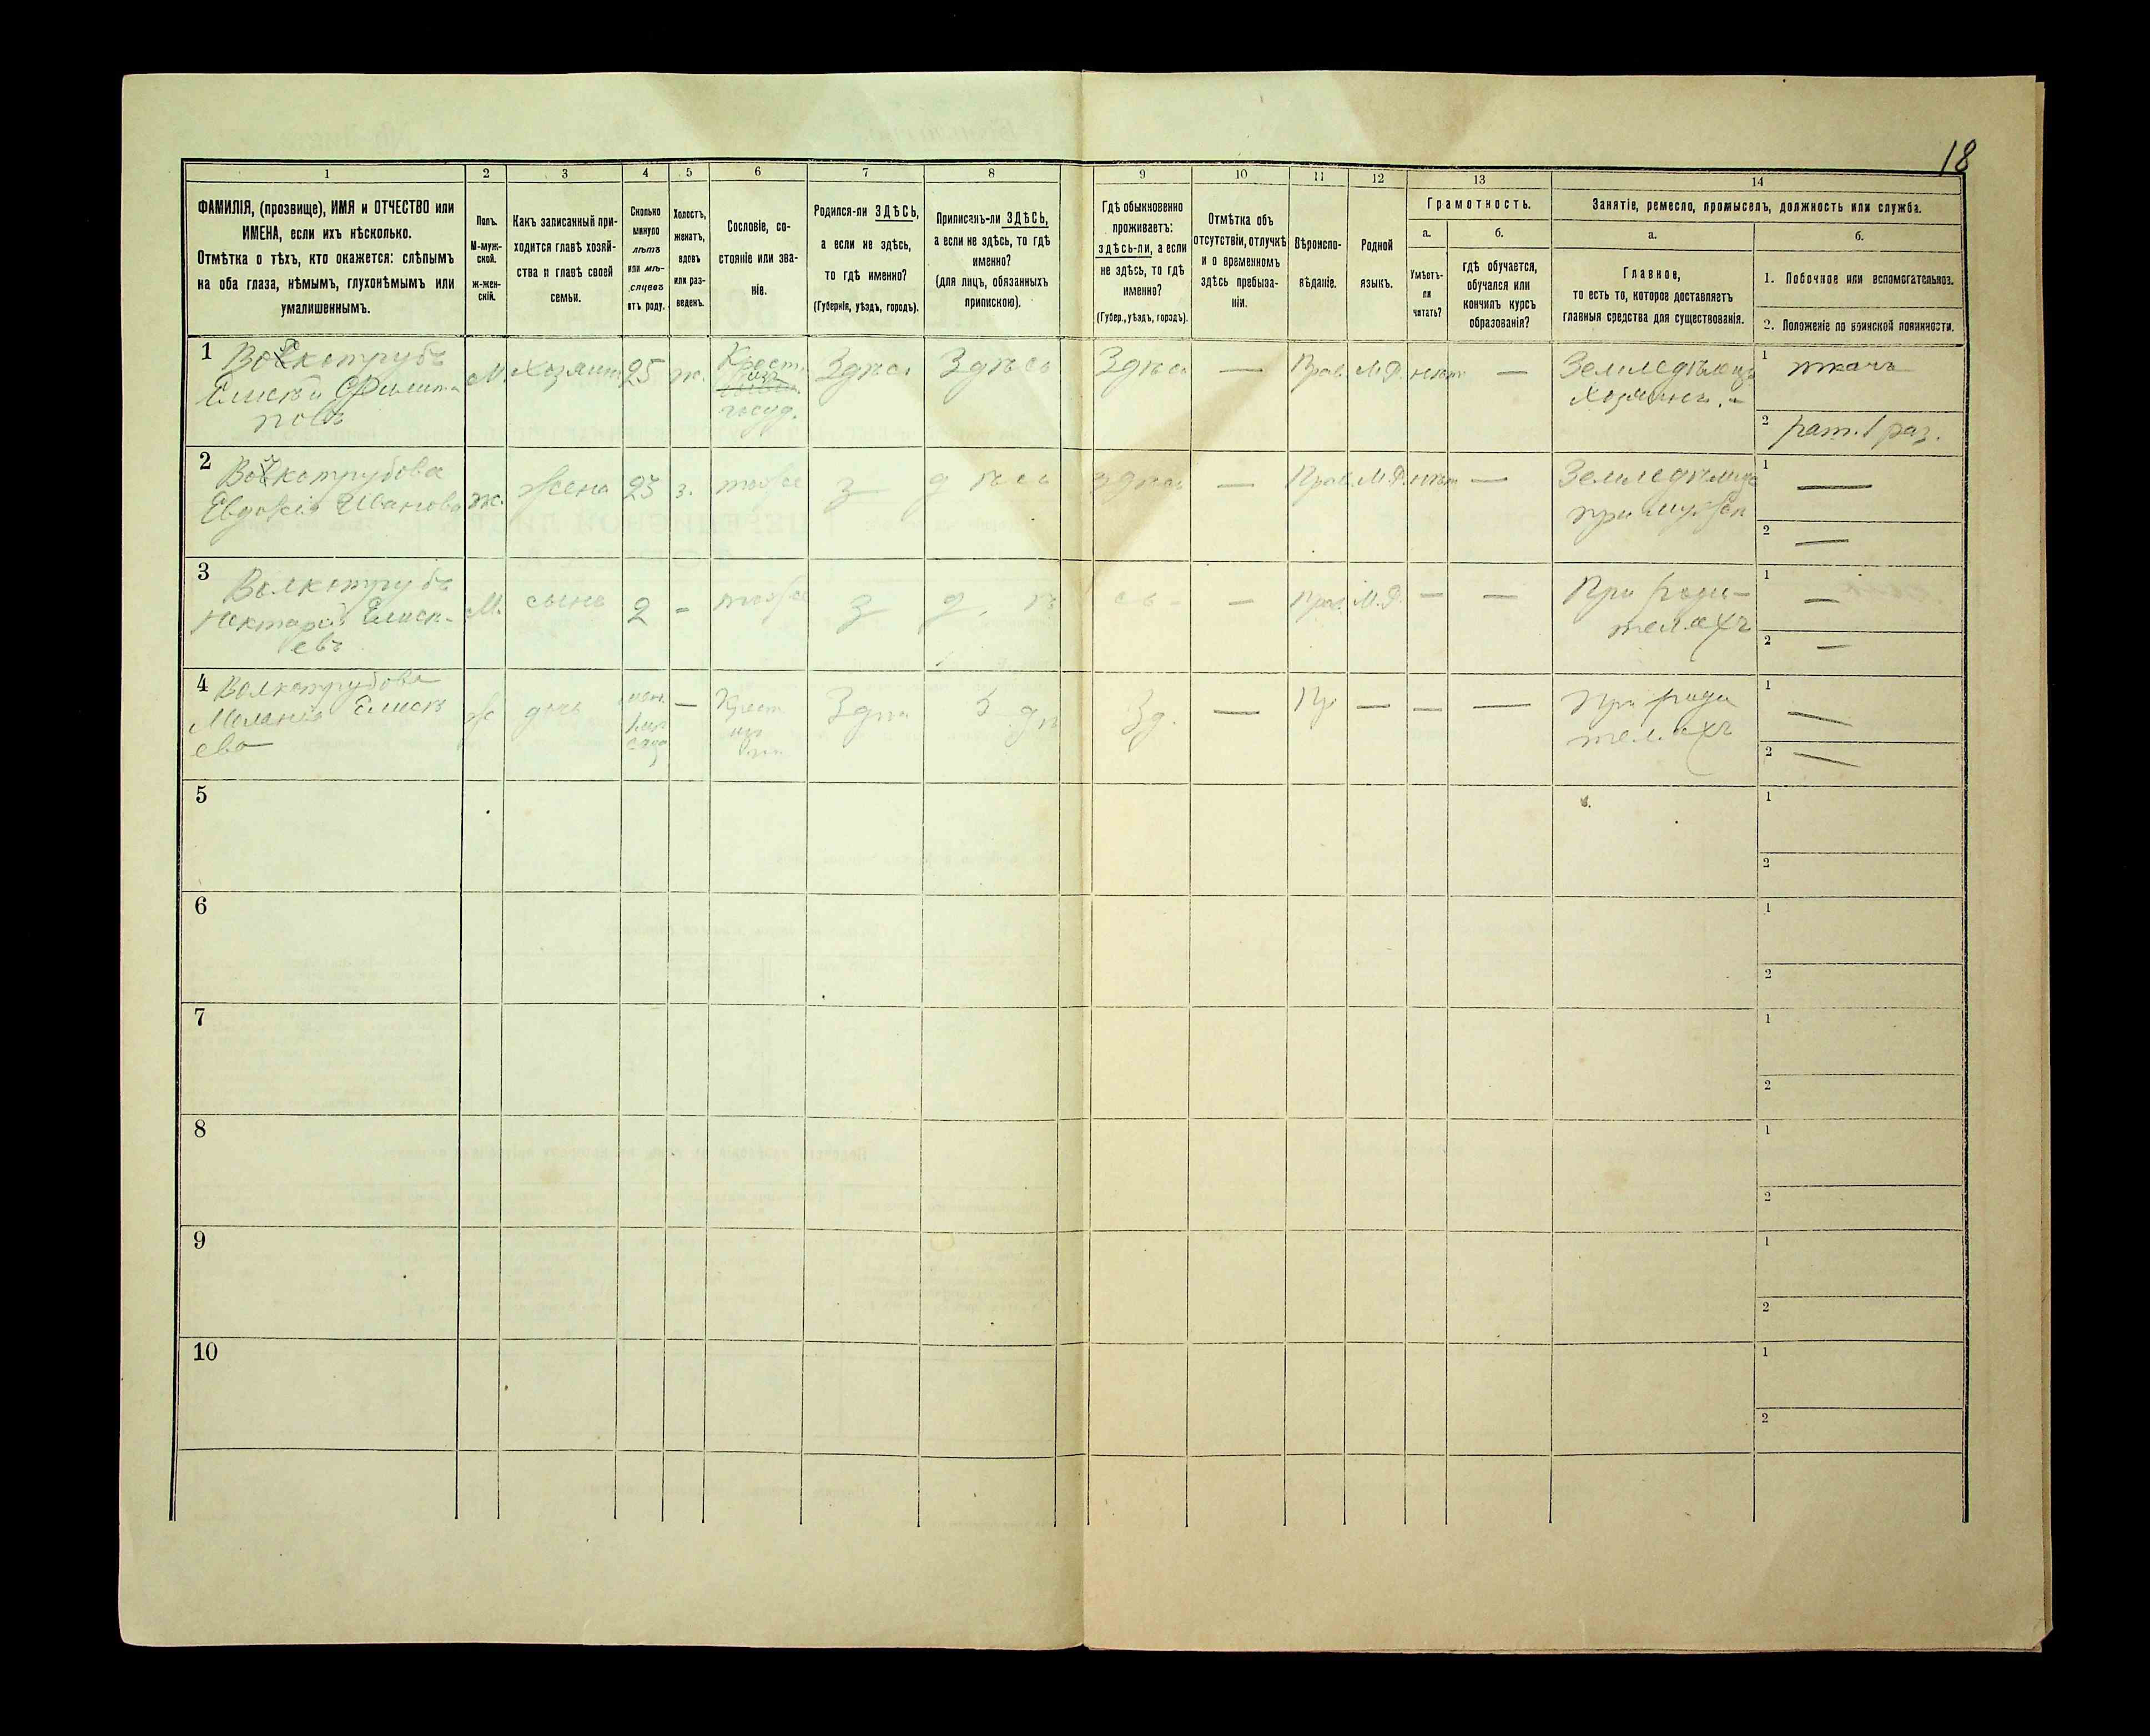 18
1
2
3
4
5
6
7
8
9
10
11
12
13
14
ФАМИЛІЯ, (прозвище), ИМЯ и ОТЧЕСТВО или
ИМЕНА, если ихъ нѣсколько.
Отмѣтка о тѣхъ, кто окажется: слѣпымъ
на оба глаза, нѣмымъ, глухонѣмымъ или
умалишеннымъ.
Полъ.
М-муж-
ской.
ж-жен-
скій.
Какъ записанный при-
ходится главѣ хозяй-
ства и главѣ своей
семьи.
Сколько
минуло
лѣтъ
или мѣ-
сяцевъ
отъ роду.
Холостъ,
женатъ,
вдовъ
или раз-
веденъ.
Сословіе, со-
стояніе или зва-
ніе.
Родился-ли ЗДѢСЬ,
а если не здѣсь,
то гдѣ именно?
(Губернія, уѣздъ, городъ).
Приписанъ-ли ЗДѢСЬ,
а если не здѣсь, то гдѣ
именно?
(для лицъ, обязанныхъ
припискою).
Гдѣ обыкновенно
проживаетъ:
здѣсь-ли, а если
не здѣсь, то гдѣ
именно?
(Губер., уѣздъ, городъ).
Отмѣтка объ
отсутствіи, отлучкѣ
и о временномъ
здѣсь пребыва-
ніи.
Вѣроиспо-
вѣданіе.
Родной
языкъ.
Грамотность.
а.
Умѣетъ-
ли
читать?
б.
гдѣ обучается,
обучался или
кончилъ курсъ
образованія?
Занятіе, ремесло, промыселъ, должность или служба.
а.
Главное,
то есть то, которое доставляетъ
главныя средства для существованія.
б.
1. Побочное или вспомогательное.
2. Положеніе по воинской повинности.
1 Волкотрубъ
Елисѣй Филип-
повъ
М. Хозяинъ 25 ж. Крест.
изъ
госуд.
Здѣсь Здѣсь Здѣсь — Прав. М.Р. нѣтъ —
Земледѣлецъ
Хозяинъ. -
1 ткачъ
2 рат. 1 раз.
2 Волкотрубова
Евдокія Иванова
ж. жена 25 з. тоже з д ѣ с ь здѣсь — Прав. М.Р. нѣтъ —
Земледѣлица
при мужѣ
1 —
2 —
3 Волкотрубъ
Нектарій Елисѣ-
евъ
М. сынъ 2 - тоже з д. ѣ сь - — Прав. М.Р. — —
При роди-
теляхъ
1 —
2 —
4 Волкотрубова
Меланія Елисѣ
ева
ж дочь — Крест
изъ
Здѣ З дѣ Зд. — Пр — — —
При роди
теляхъ
1 —
2 —
5
1
2
6
1
2
7
1
2
8
1
2
9
1
2
10
1
2